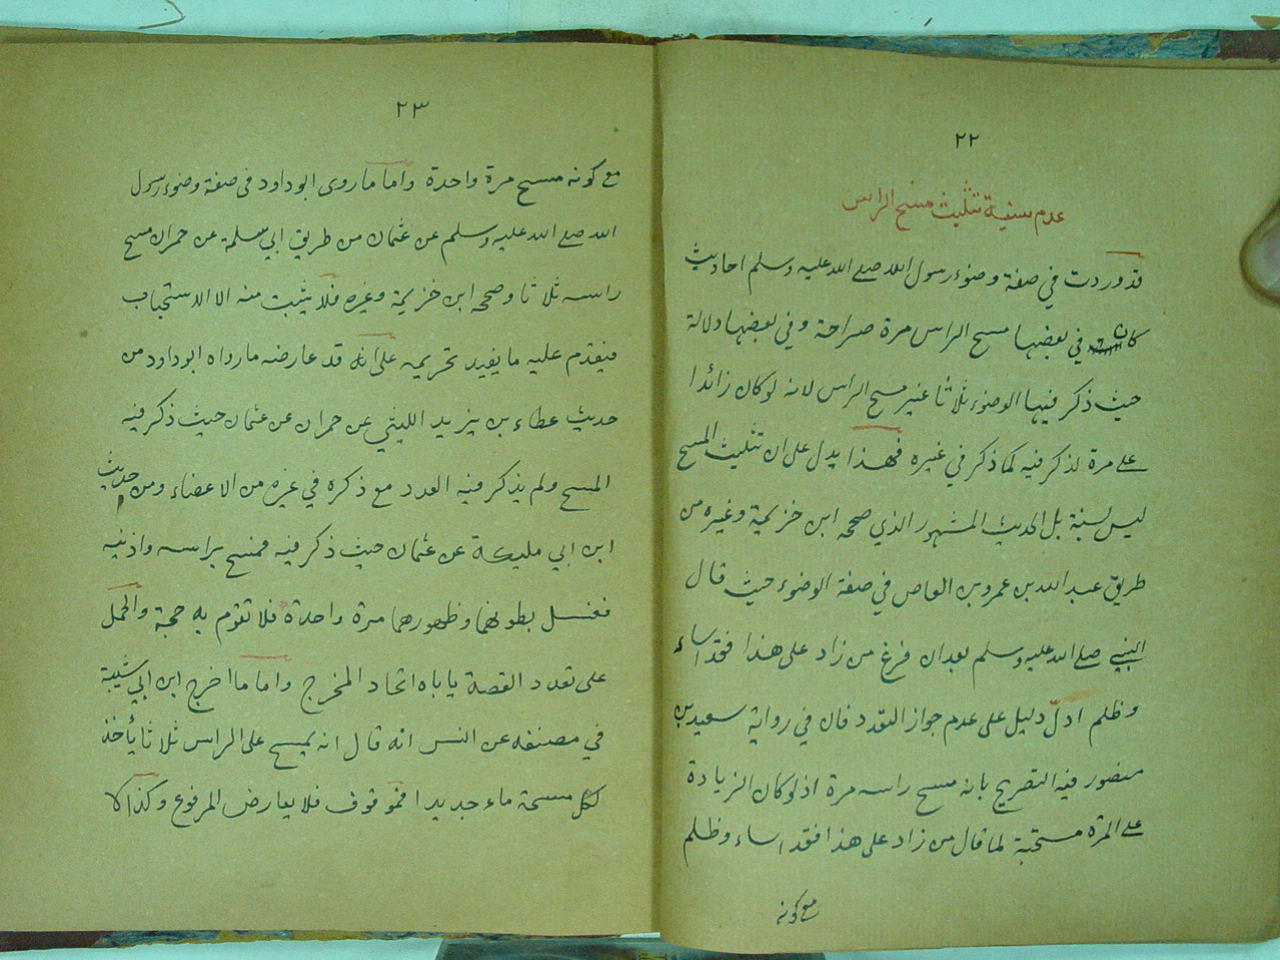 ٢٢
عدم سنية تثليث مسح الراس
قد وردت في صفة وضوء رسول الله صلى الله عليه وسلم احاديث
كان في بعضها مسح الراس مرة صراحة وفي بعضها دلالة
حيث ذكر فيها الوضوء ثلاثا غير مسح الراس لانه لو كان زائدا
على مرة لذكر فيه كما ذكر في غيره فهذا يدل على ان تثليث المسح
ليس بسنة بل الحديث المشهور الذي صححه ابن خزيمة وغيره من
طريق عبد الله بن عمرو بن العاص في صفة الوضوء حيث قال
النبي صلى الله عليه وسلم بعد ان فرغ من زاد على هذا فقد اساء
وظلم ادل دليل على عدم جواز التعدد فان في رواية سعيد بن
منصور فيه التصريح بانه مسح راسه مرة اذ لو كان الزيادة
على المرة مستحبة لما قال من زاد على هذا فقد اساء وظلم
مع كونه
٢٣
مع كونه مسح مرة واحدة واما ما روى ابو داود في صفة وضوء رسول
الله صلى الله عليه وسلم عن عثمان من طريق ابي سلمة عن حمران مسح
راسه ثلاثا وصححه ابن خزيمة وغيره فلا يثبت منه الا الاستحباب
فيقدم عليه ما يفيد تحريمه على انه قد عارضه ما رواه ابو داود من
حديث عطاء بن يزيد الليثي عن حمران عن عثمان حيث ذكر فيه
المسح ولم يذكر فيه العدد مع ذكره في غيره من الاعضاء ومن حديث
ابن ابي مليكة عن عثمان حيث ذكر فيه فمسح براسه واذنيه
فغسل بطونهما وظهورهما مرة واحدة فلا تقوم به حجة والحمل
على تعدد القصة يأباه اتحاد المخرج واما ما اخرج ابن ابي شيبة
في مصنفه عن انس انه قال انه يمسح على الراس ثلاثا يأخذ
لكل مسحة ماء جديدا فموقوف فلا يعارض المرفوع وكذا لا